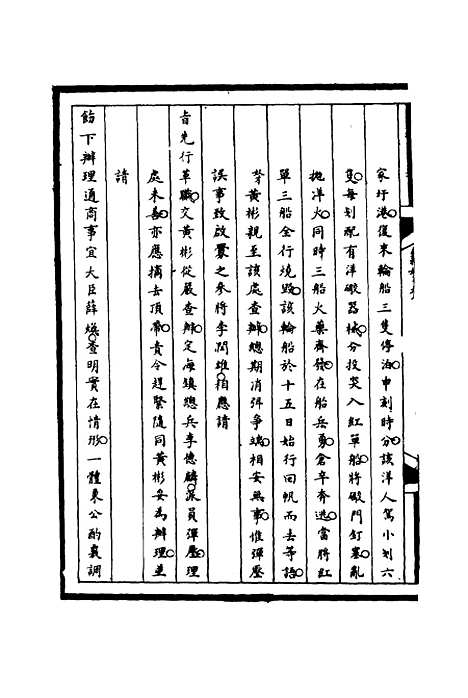 家圩港復來輪船三隻停泊申刻時分該洋人駕小划六
隻每划配有洋礮器械分投突入紅單船將礮門釘塞亂
拋洋火同時三船火藥齊發在船兵勇倉卒奔逃當將紅
單三船全行燒燬該輪船於十五日始行回帆而去等語
黃彬親至該處查辦總期消弭爭端相安無事惟彈壓
誤事致啟釁之參將李閏雄相應請
旨先行革職交黃彬從嚴查辦定海鎮總兵李德麟派員彈壓理
處未善亦應摘去頂帶責令趕緊隨同黃彬妥為辦理並
請
飭下辦理通商事宜大臣薛煥查明實在情形一體秉公酌裏調